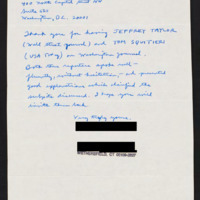 400 North Capitol Street NW
Suite 650
Washington, D.C. 20001
Thank you for having JEFFREY TAYLOR
(Wall Street Journal) and TOM SQUITIERI
(USA Today) on Washington Journal.
Both these reporters speak well —
fluently, without hesitation, — and presented
good explanations which clarified the
subjects discussed. I hope you will
invite them back.
Very truly yours,
WETHERSFIELD, CT